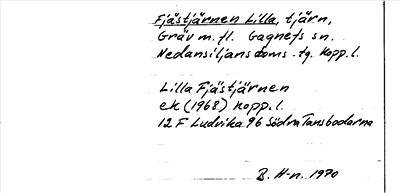 Fjästjärnen Lilla, tjärn,
Gräv m. fl. Gagnefs sn.
Nedansiljans doms. tg. Kopp. l.
Lilla Fjästjärnen
ek (1968) Kopp. l.
12 F Ludvika 96 Södra Tansbodarna
B. H-n. 1970